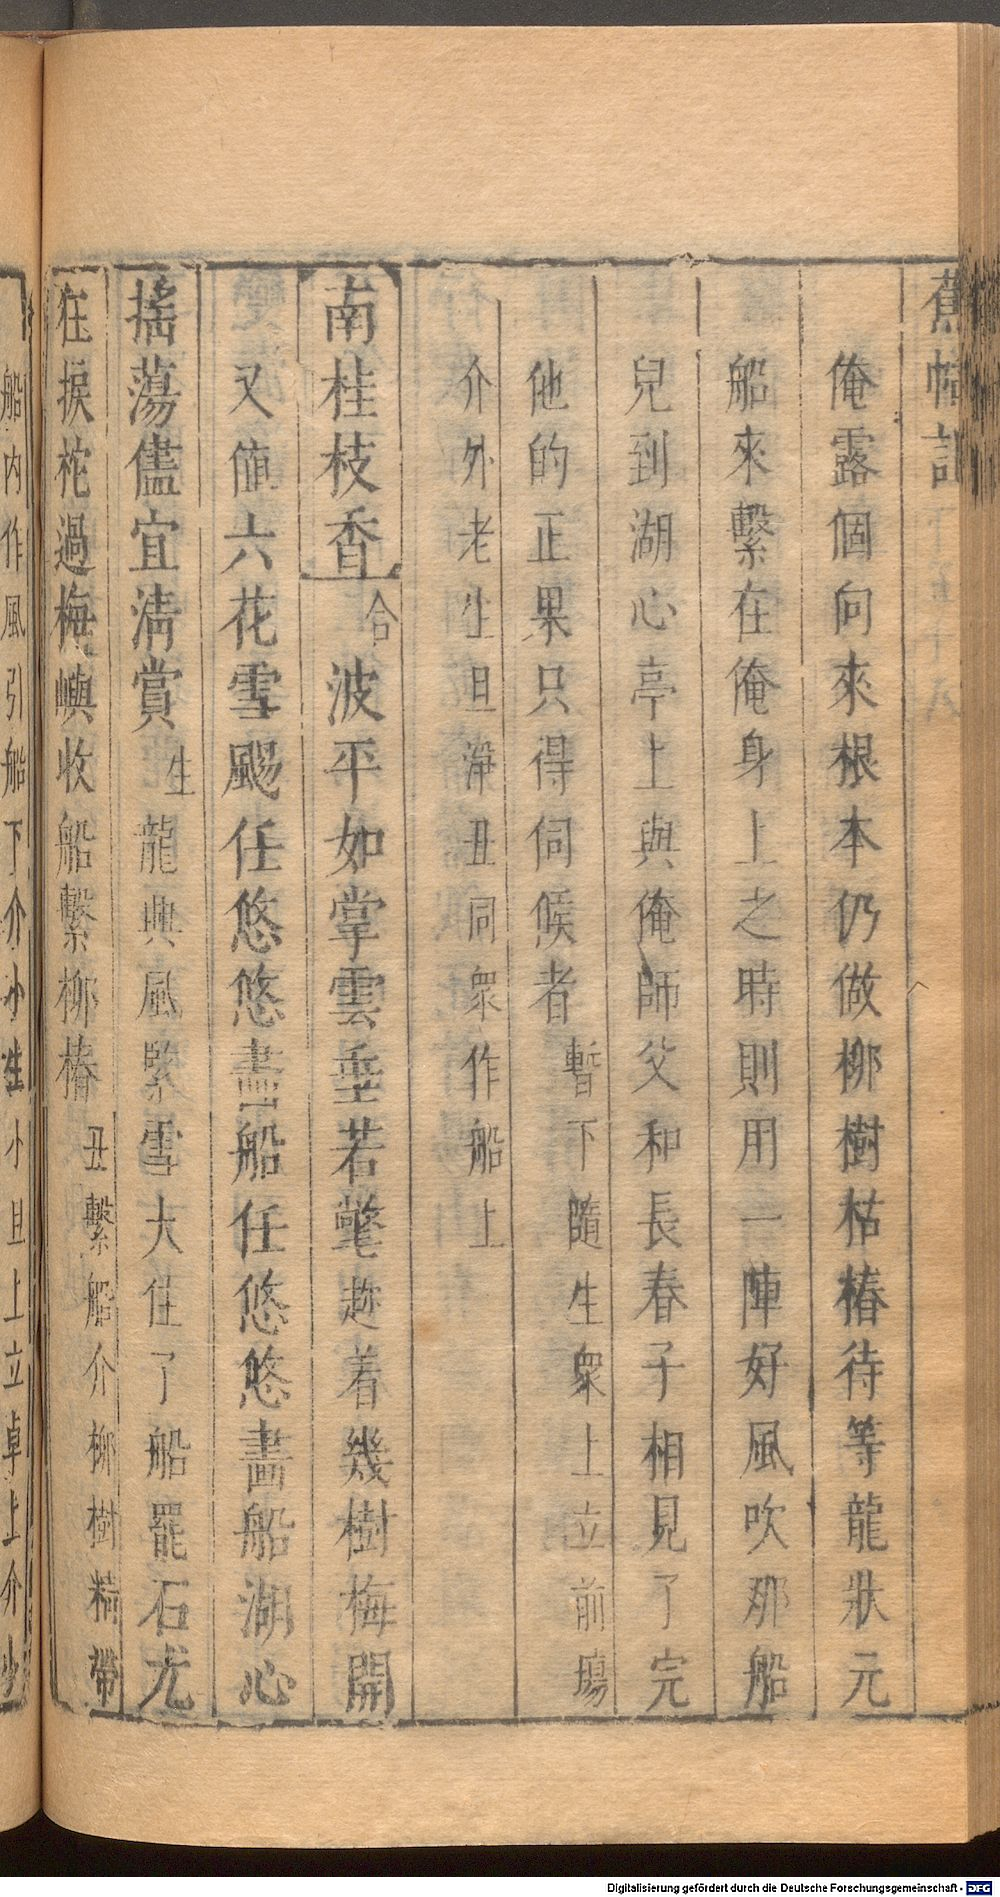 蕉帕記
俺露個向來根本仍做柳樹枯樁待等龍狀元
船來繫在俺身上之時則用一陣好風吹那船
兒到湖心亭上與俺師父和長春子相見了完
他的正果只得伺候者暫下隨生衆上立前場
介外老生旦淨丑同衆作船上
南桂枝香合波平如掌雲垂若氅趂着幾樹梅開
又值六花雪颺任悠悠畫船任悠悠畫船湖心
搖蕩儘宜清賞生龍典風緊雪大住了船罷石尤
狂捩柁過梅嶼收船繫柳樁丑繫船介柳樹精帶
船内作風引船下介小生小旦上立卓上介
Digitalisierung gefördert durch die Deutsche Forschungsgemeinschaft - DFG